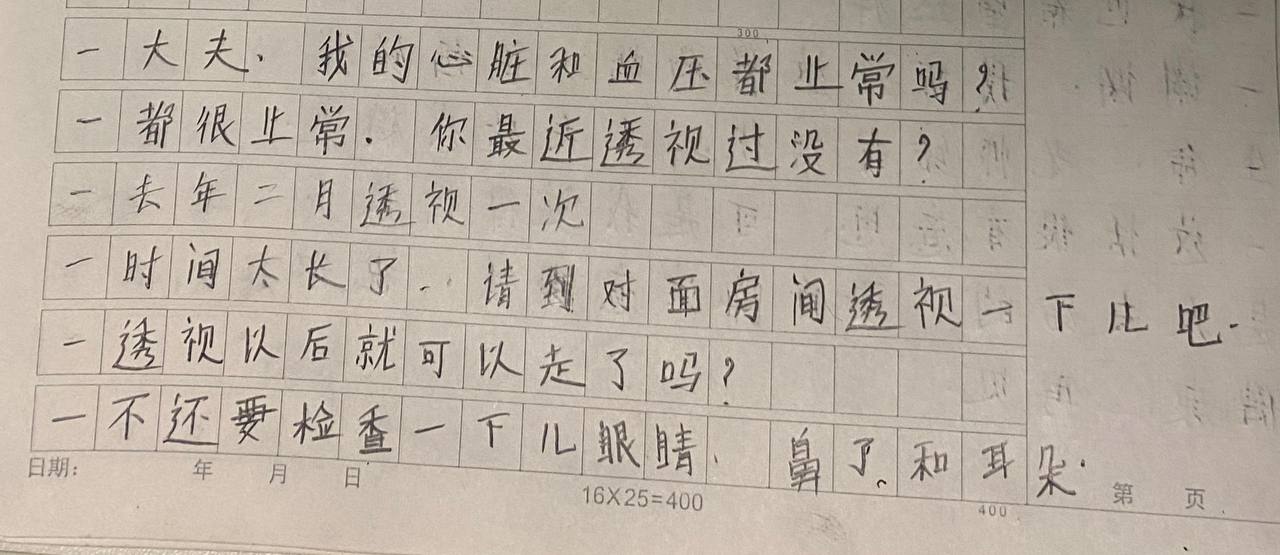 300
一大夫、我的心脏和血压都止常吗?
一都很止常. 你最近透视过没有?
一去年二月透视一次
一时间太长了. 请到对面房间透视一下儿吧.
一透视以后就可以走了吗?
一不还要检查一下儿眼睛、鼻了和耳朵.
日期: 年 月 日 16X25=400 400 第 页